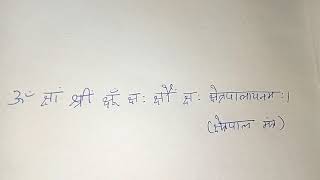 ॐ क्षां श्रीं क्षूँ क्षः क्षौं क्षः क्षेत्रपालायनमः।
(क्षेत्रपाल मंत्र)